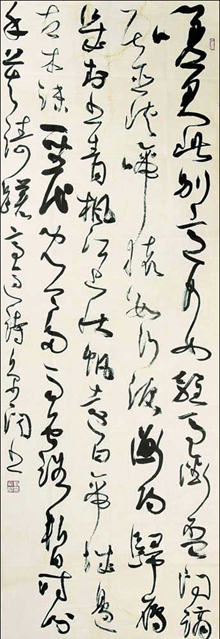 嗟君此別意何如駐馬銜杯問謫
居巫峽啼猿數行淚衡陽歸雁
幾封書青楓江上秋帆遠白帝城邊
古木疏聖代即今多雨露暫時分
手莫躊躇高適詩